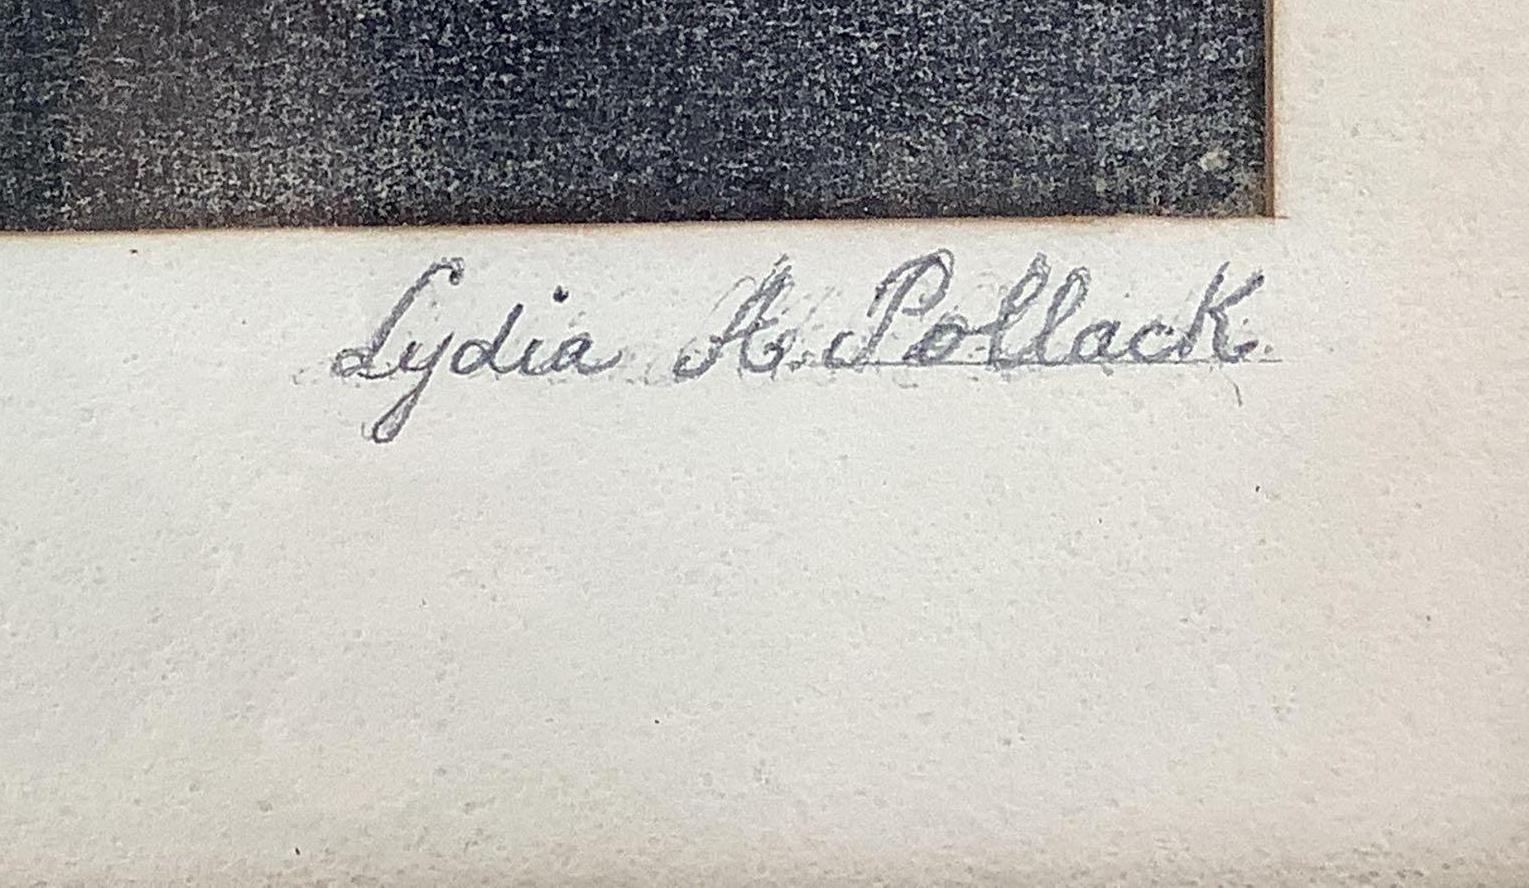 Lydia A. Pollack